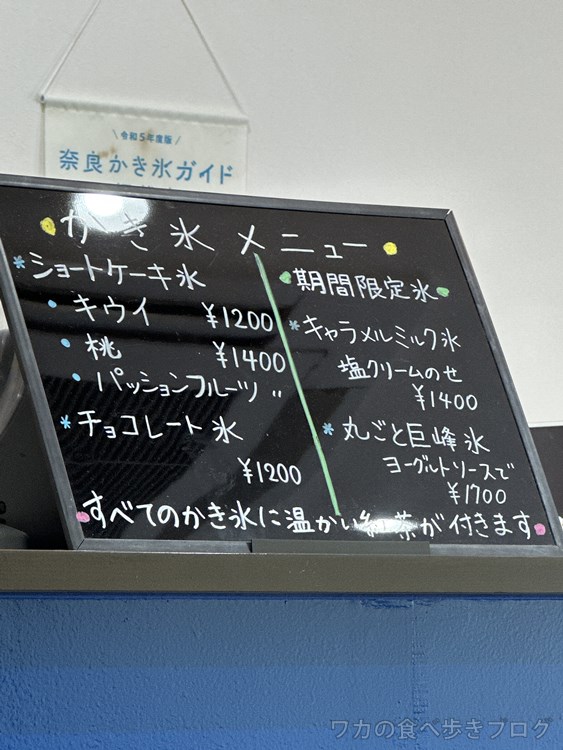 \ 令和5年度版 /
奈良かき氷ガイド
かき氷メニュー
*ショートケーキ氷
・キウイ ¥1200
・桃 ¥1400
・パッションフルーツ 〃
*チョコレート氷
¥1200
期間限定氷
*キャラメルミルク氷
塩クリームのせ
¥1400
*丸ごと巨峰氷
ヨーグルトソースで
¥1700
すべてのかき氷に温かい紅茶が付きます
ワカの食べ歩きブログ